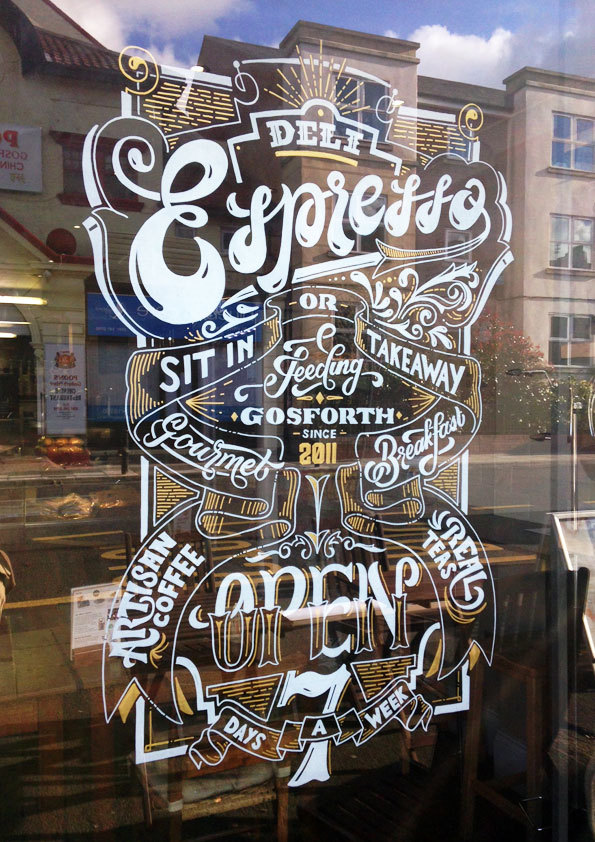 DELI
Espresso
SIT IN
OR
TAKEAWAY
Feeding
GOSFORTH
SINCE
2011
Gourmet
Breakfast
ARTISAN
COFFEE
REAL
TEAS
OPEN
7
DAYS A WEEK